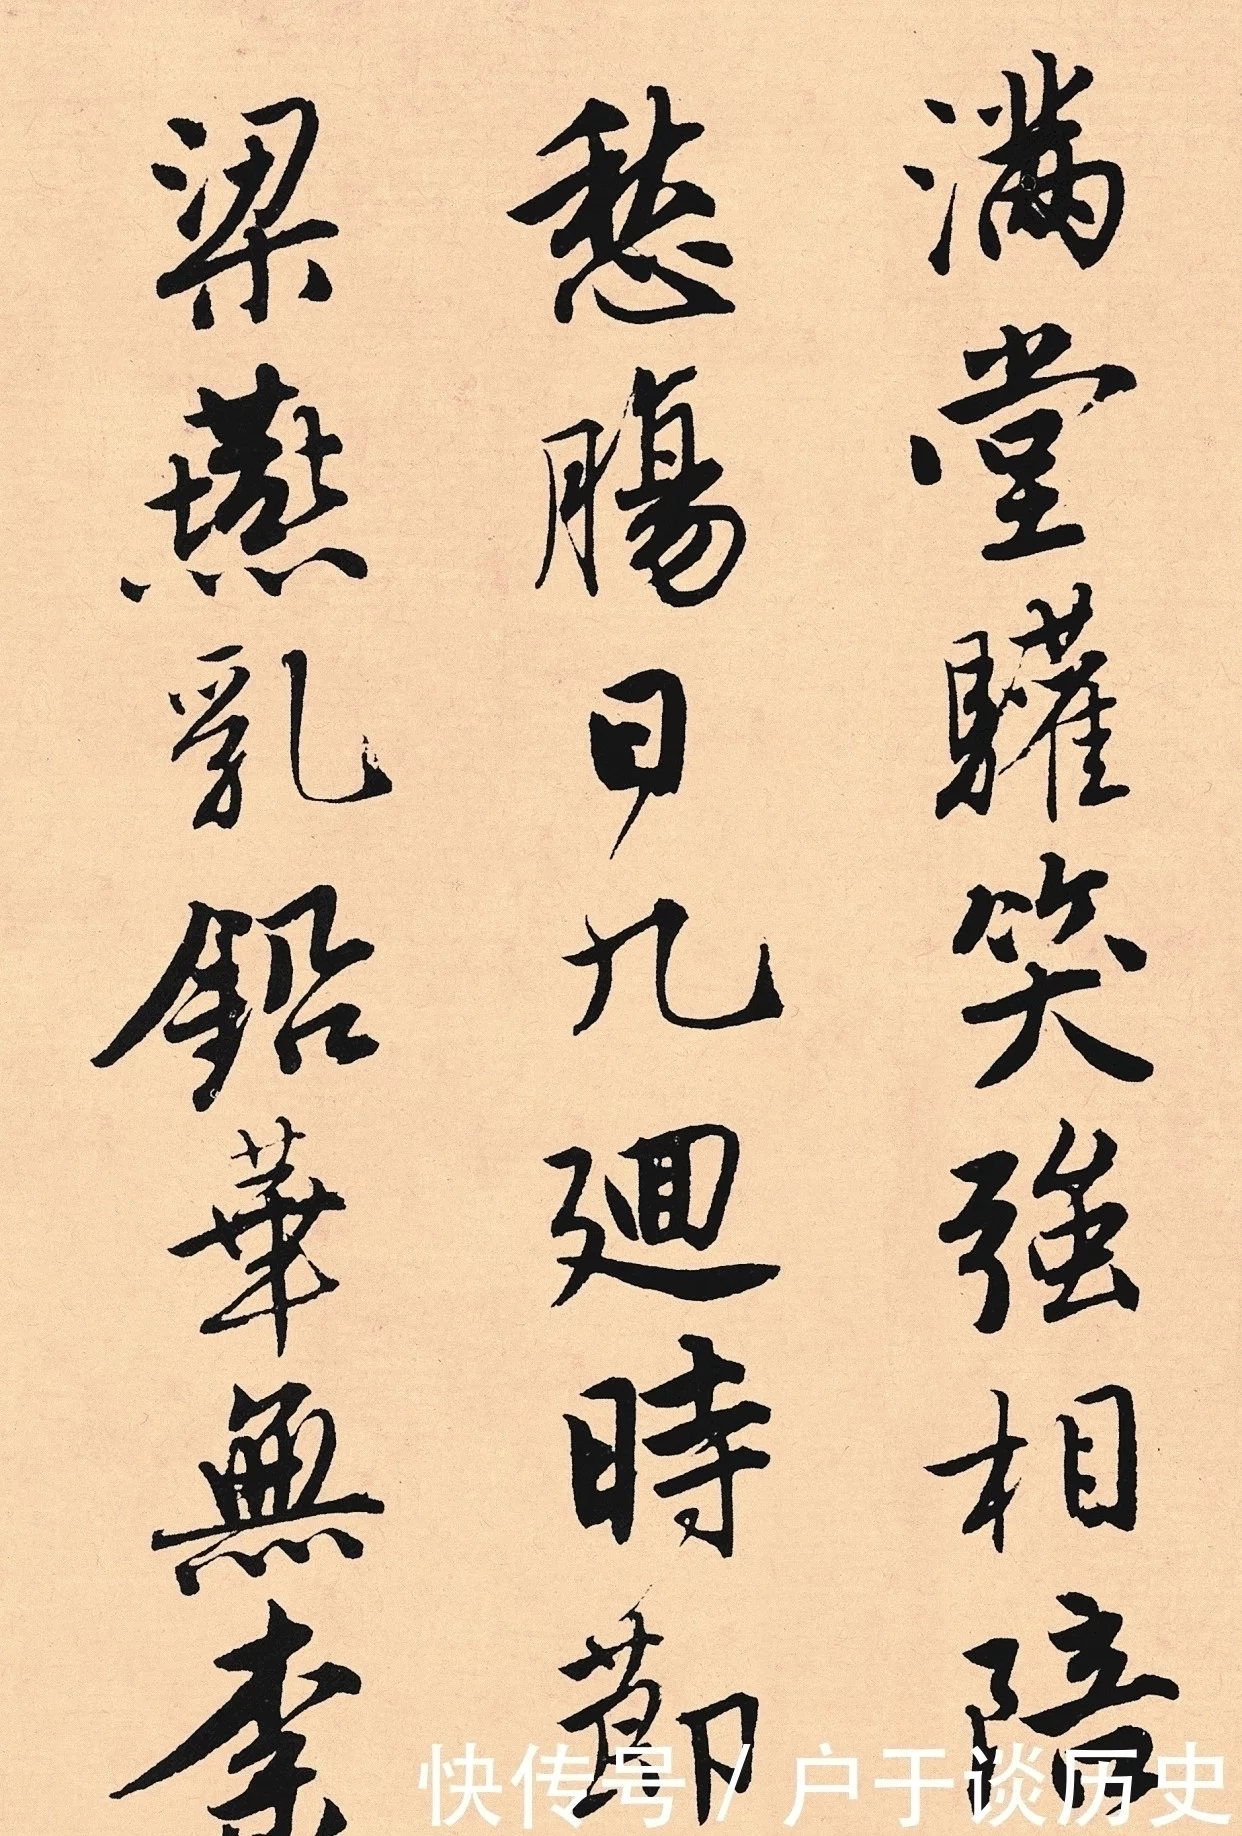 滿堂驩笑強相陪
愁腸日九廻時節
梁燕乳鉛華無
快传号 / 户于谈历史